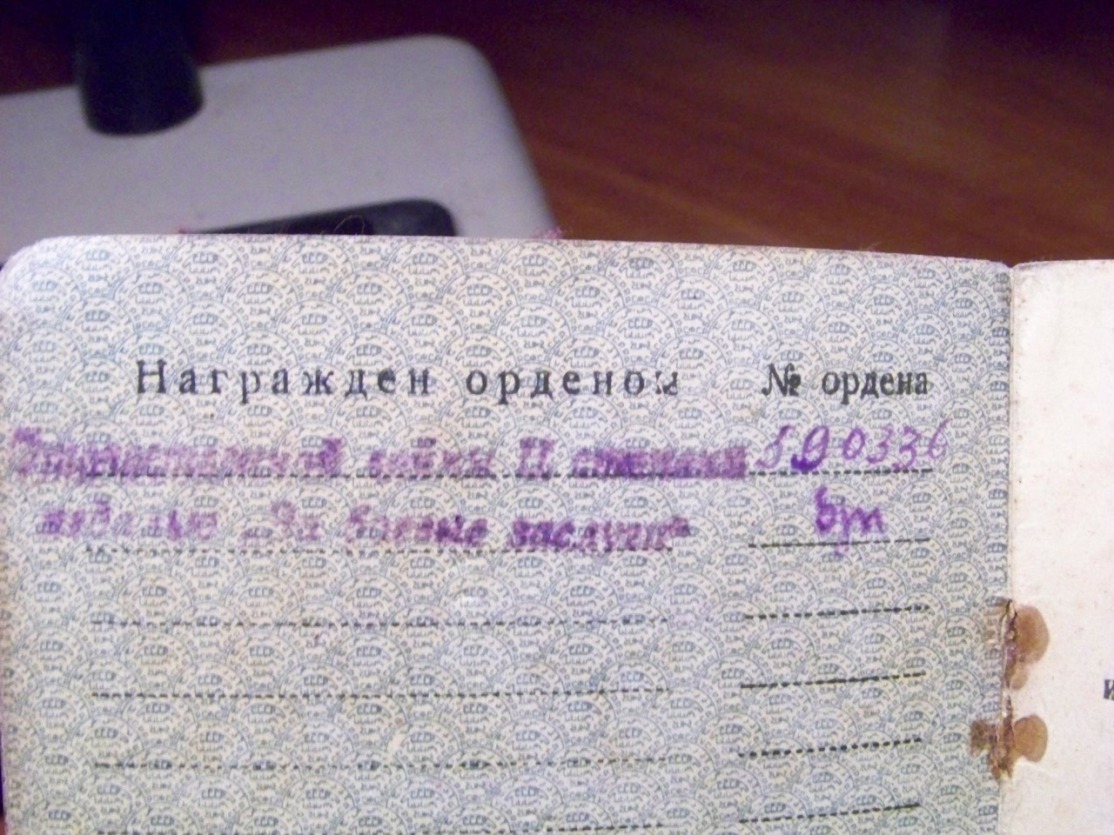 Награжден орденом № ордена
Отечественной войны II степени 890336
медалью „За боевые заслуги“ б/н